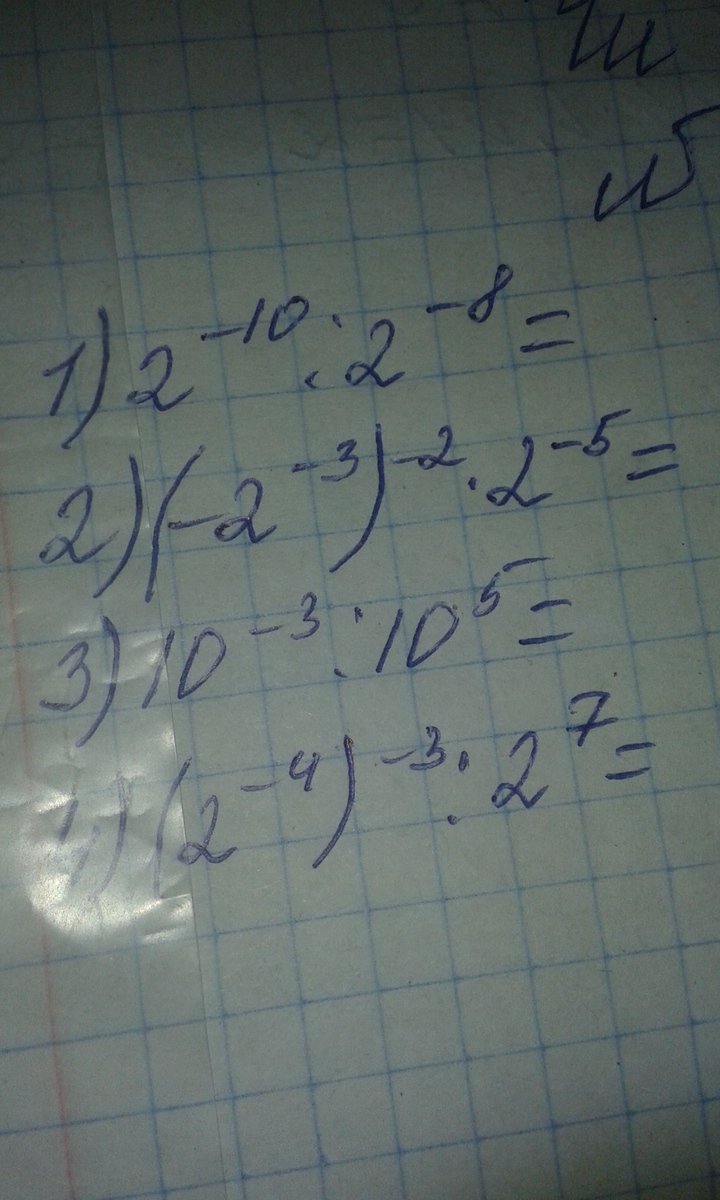 1) 2⁻¹⁰ : 2⁻⁸ =
2) (-2⁻³)⁻² · 2⁻⁵ =
3) 10⁻³ : 10⁵ =
4) (2⁻⁴)⁻³ : 2⁷ =